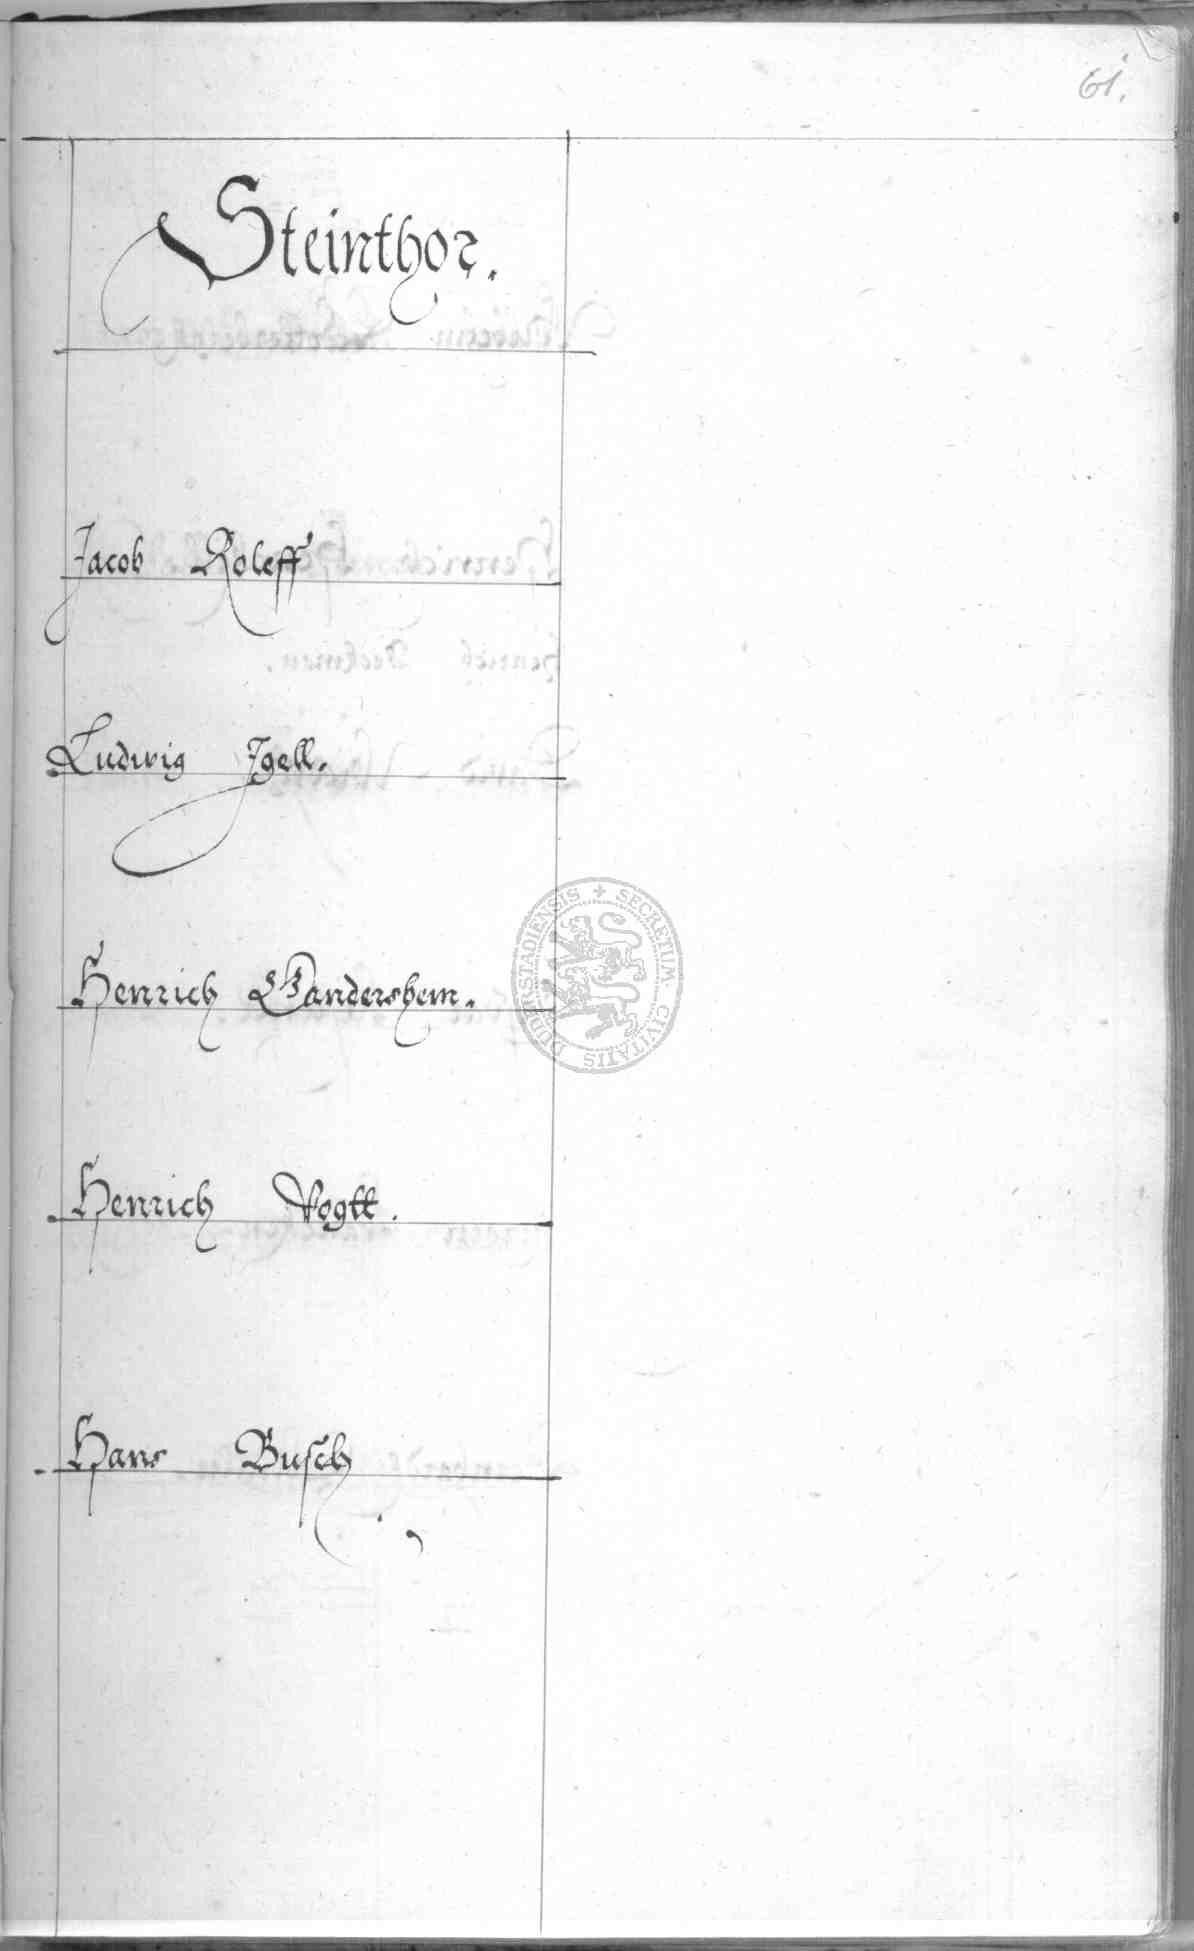 61.
Steinthor.
Jacob Roleff
Ludwig Igell.
Henrich Gandershem.
Henrich Vogtt.
Hans Busch
SECRETUM CIVITATIS DUDERSTADIENSIS